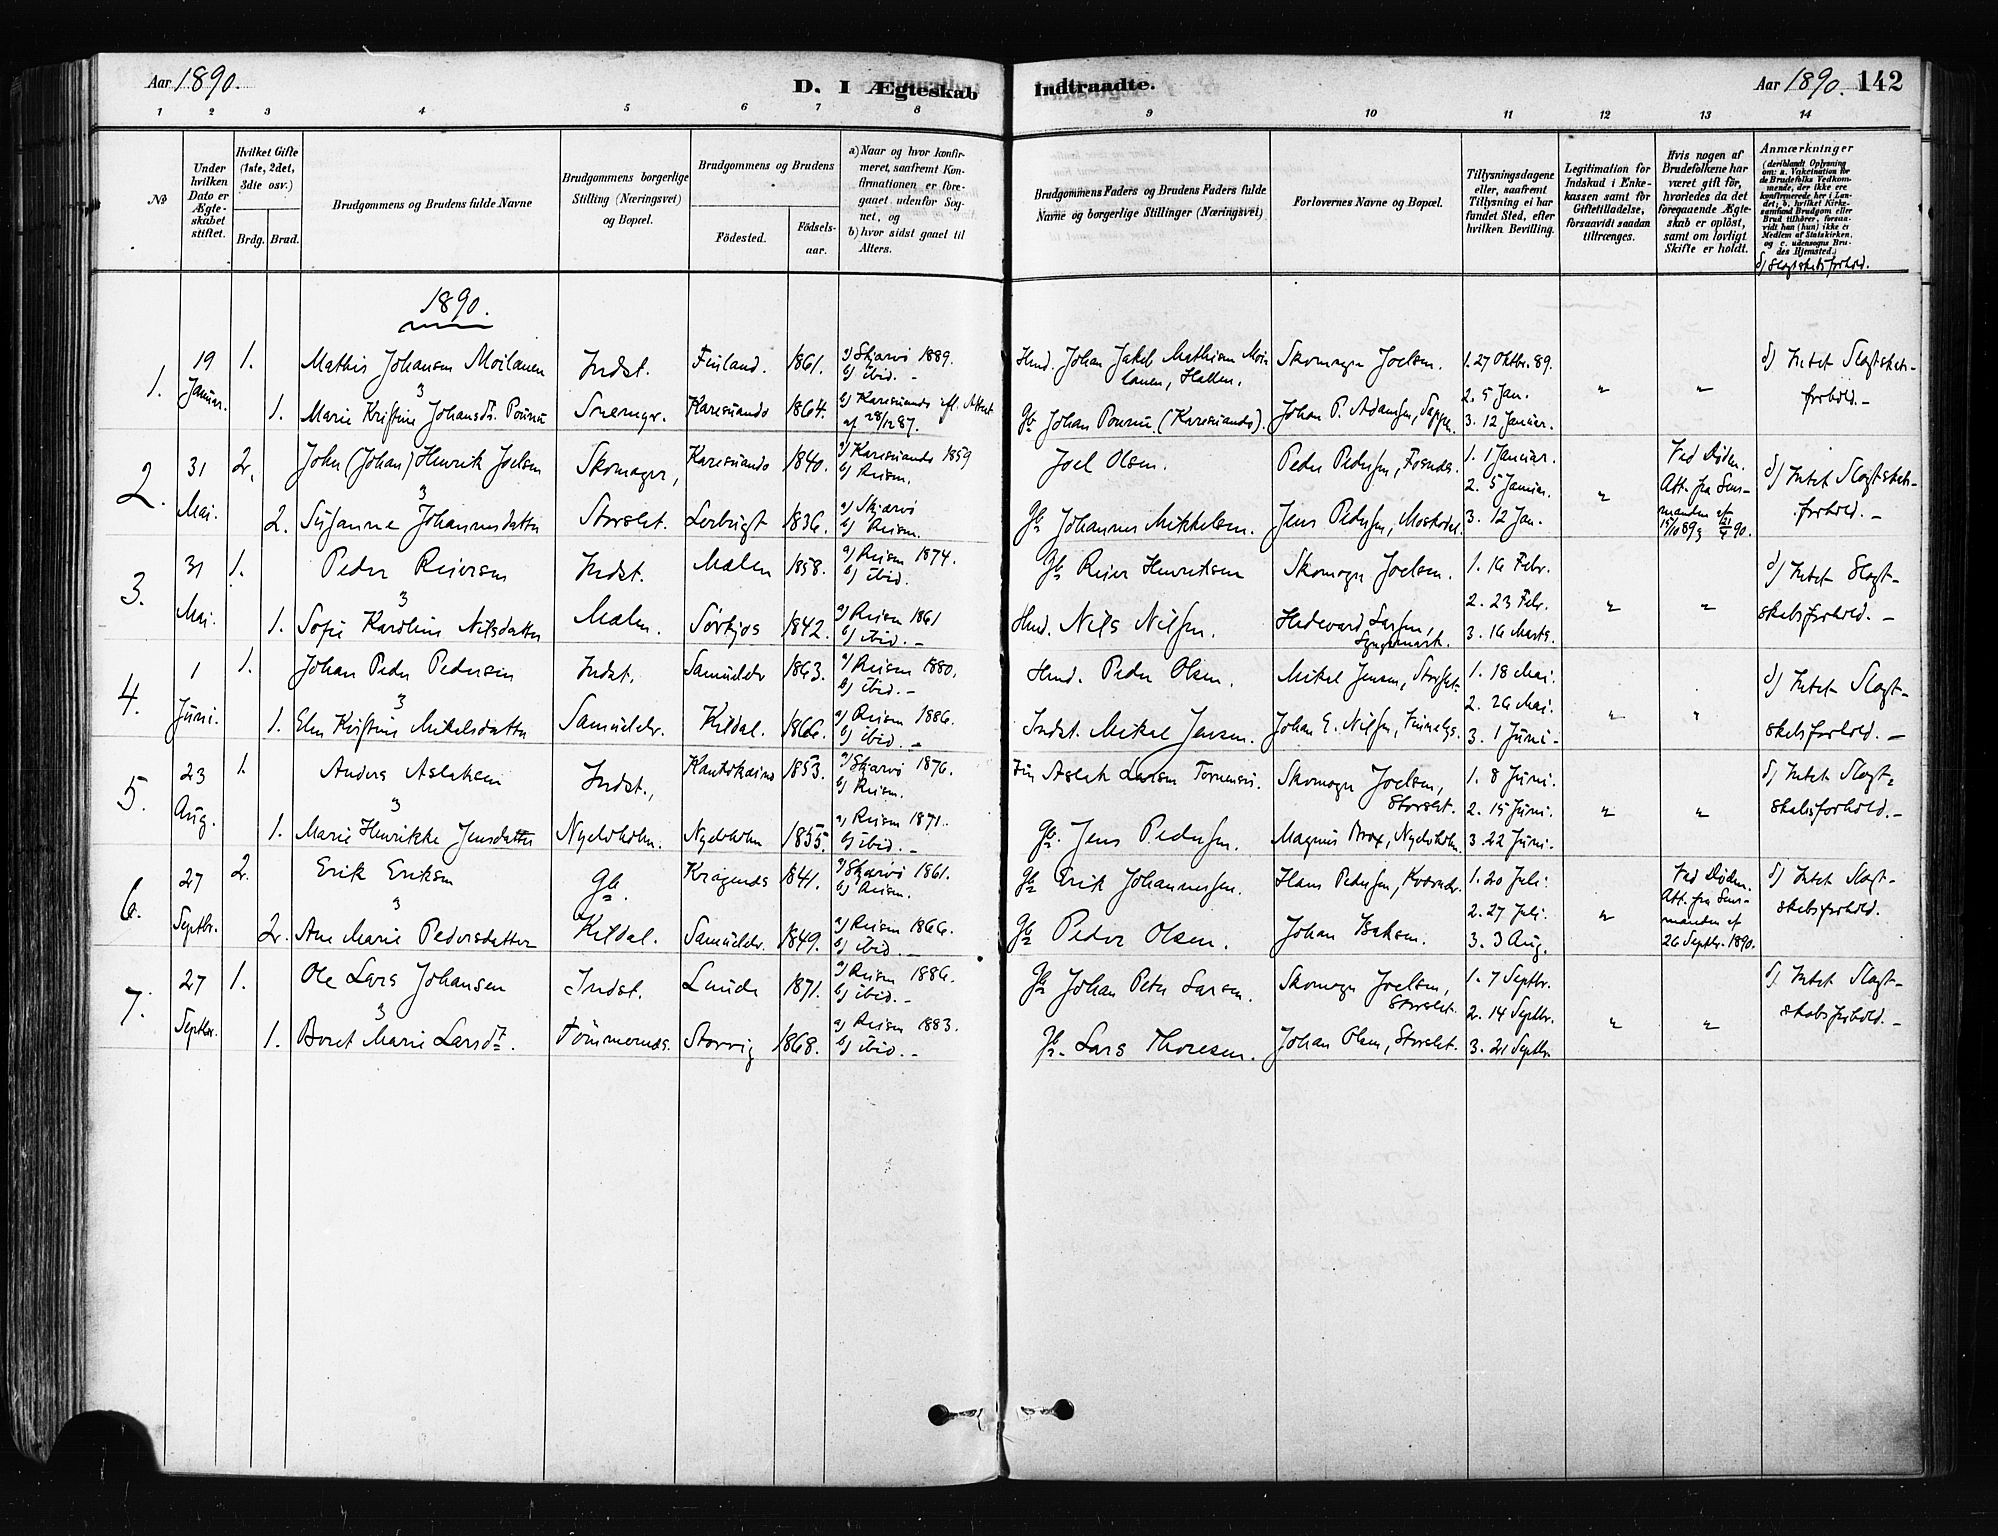 Aar 1890.
D. I Ægteskab
Indtraadte.
Aar 1890. 142
1 2 3 4 5 6 7 8 9 10 11 12 13 14
№
Under hvilken Dato er Ægteskabet stiftet.
Hvilket Gifte (1ste, 2det, 3die osv.)
Brdg. Brud.
Brudgommens og Brudens fulde Navne
Brudgommens borgerlige Stilling (Næringsvei) og Bopæl.
Brudgommens og Brudens
Födested.
Födsels-aar.
a) Naar og hvor konfirmeret, saafremt Konfirmationen er foregaaet udenfor Sognet, og
b) hvor sidst gaaet til Alters.
Brudgommens Faders og Brudens Faders fulde Navne og borgerlige Stillinger (Næringsvei)
Forlovernes Navne og Bopæl.
Tillysningsdagene eller, saafremt Tillysning ei har fundet Sted, efter hvilken Bevilling.
Legitimation for Indskud i Enkekassen samt for Giftetilladelse, forsaavidt saadan tiltrænges.
Hvis nogen af Brudefolkene har været gift för, hvorledes da det foregaaende Ægteskab er oplöst, samt om lovligt Skifte er holdt.
Anmærkninger
(deriblandt Oplysning om: a. Vakcination for de Brudefolks Vedkommende, der ikke ere konfirmerede her i Landet; b. hvilket Kirkesamfund Brudgom eller Brud tilhörer, forsaavidt han (hun) ikke er Medlem af Statskirken, og c. udensogns Brudes Hjemsted.)
d) Slægtskabsforhold.
1890.
1. 19 Januar. 1. Mathis Johansen Moilanen Indst. Finland. 1861. a) Skjærvö 1889. b) ibid. -
& 1. Marie Kristine Johansdt. Snemyr. Karesuando 1864. b) Karesuando efl. Attest af 28/12 87.
Ind. Johan Jakob Mathisen Moilanen, Skomager Joelsen. 1. 27 Oktbr. 89. 2. 5 Jan. " " d) Intet Slægtskabs-
Johan (Karesuando). Johan P. Adamsen, 3. 12 Januar. forhold. -
2. 31 Mai. 2. John (Johan) Henrik Joelsen Skomager, Karesuando 1840. a) Karesuando 1859 b) Reisen.
& 2. Susanne Johannesdatter Storslet. Leirbugt 1836. a) Skjærvö b) Reisen.
Joel Olsen. Peder Pedersen, 1. 1 Januar. 2. 5 Januar. " Ved Döden. Att. fra Lensmanden af 15/10 89 & 90. d) Intet Slægtskabs-
Gb Johannes Mikkelsen. Jens Pedersen, 3. 12 Jan. forhold. -
3. 31 Mai. 1. Peder Reiersen Indst. Mælen 1858. a) Reisen 1874. b) ibid.
& 1. Sofie Karoline Nilsdatter Mælen. Sörkjos 1842. a) Reisen 1861 b) ibid. -
Gb Reier Henriksen Skomager Joelsen. 1. 16 Febr. 2. 23 Febr. " " d) Intet Slægt-
Ind. Nils Nilsen. Hedevard Larsen, 3. 16 Marts. skabsforhold. -
4. 1 Juni. 1. Johan Peder Pedersen Indst. Samuelelv 1863. a) Reisen 1880. b) ibid. -
& 1. Elen Kristine Mikelsdatter Samuelelv. Kildal. 1866. a) Reisen 1886. b) ibid. -
Ind. Peder Olsen. Mikel Jensen, Storslet. 1. 18 Mai. 2. 26 Mai. " " d) Intet Slægt-
Indst. Mikel Jensen. Johan E. Nilsen, 3. 1 Juni. skabsforhold. -
5. 23 Aug. 1. Anders Aslaksen Indst., Kautokeino 1853. a) Skjærvö 1876. b) Reisen.
& 1. Marie Henrikke Jensdatter Nyelvholm. Nyelvholm 1855. a) Reisen 1871. b) ibid. -
Aslak Larsen Skomager Joelsen, Storslet. 1. 8 Juni. 2. 15 Juni. " " d) Intet Slægt-
Gb. Jens Pedersen. Magnus Brox, Nyelvholm. 3. 22 Juni. skabsforhold. -
6. 27 Septbr. 2. Erik Eriksen Gb. Kragenes 1841. a) Skjærvö 1861. b) Reisen.
& 2. Ane Marie Pedersdatter Kildal. Samuelelv. 1849. a) Reisen 1866. b) ibid. -
Gb Erik Johannesen. Hans Pedersen, 1. 20 Juli. 2. 27 Juli. " Ved Döden. Att. fra Lensmanden af 26 Septbr. 1890. d) Intet Slægt-
Gb Peder Olsen. Johan Isaksen. 3. 3 Aug. skabsforhold.
7. 27 Septbr. 1. Ole Lars Johansen Indst. Lunde 1871. a) Reisen 1886. b) ibid. -
& 1. Beret Marie Larsdt. Tömmernes. Storvig 1868. a) Reisen 1883. b) ibid. -
Gb Johan Peter Larsen. Skomager Joelsen, Storslet. 1. 7 Septbr. 2. 14 Septbr. " " d) Intet Slægt-
Gb. Lars Thoresen. Johan Olsen, Storslet. 3. 21 Septbr. skabsforhold. -